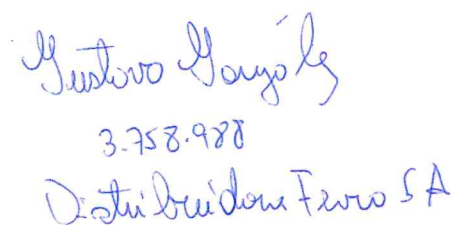 Gustavo González
3.758.988
Distribuidora Ferro S A